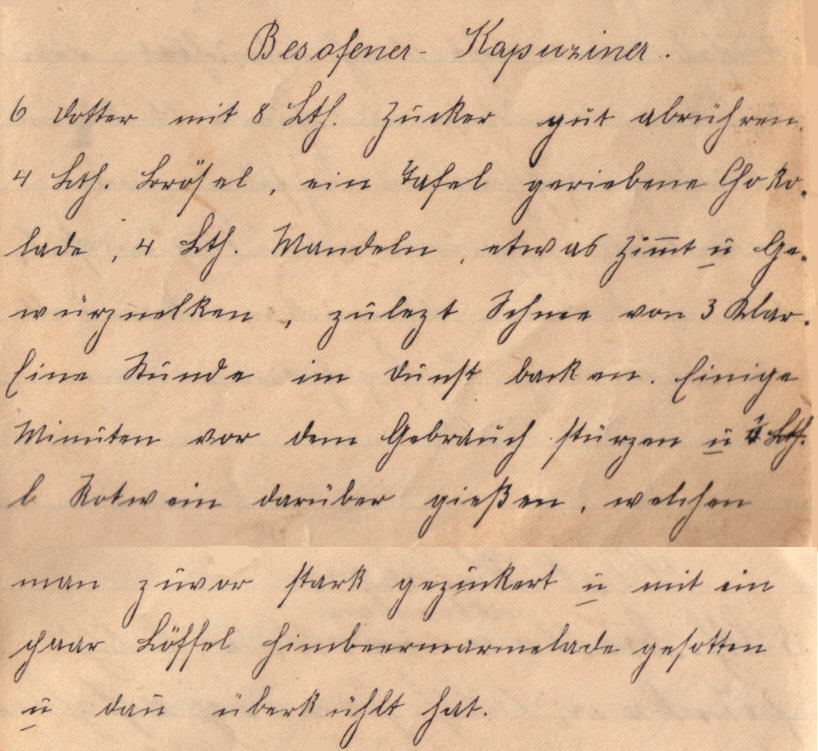 Besofener - Kapuziner.
6 Dotter mit 8 Lth. Zucker gut abrühren.
4 Lth. Brösel, ein Tafel geriebene Choko-
lade, 4 Lth. Mandeln, etwas Zim̅t u Ge-
würznelken, zulezt Schnee von 3 Klar.
Eine Stunde im Dunst backen. Einige
Minuten vor dem Gebrauch stürzen u
Rotwein darüber gießen, welchen
man zuvor stark gezuckert u mit ein
paar Löffel Himbeermarmelade gesotten
u dan̅ überkühlt hat.